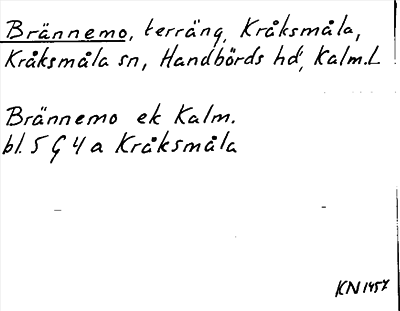 Brännemo, terräng, Kråksmåla,
Kråksmåla sn, Handbörds hd, Kalm.L
Brännemo ek Kalm.
bl. 5 G 4 a Kråksmåla
KN 1957